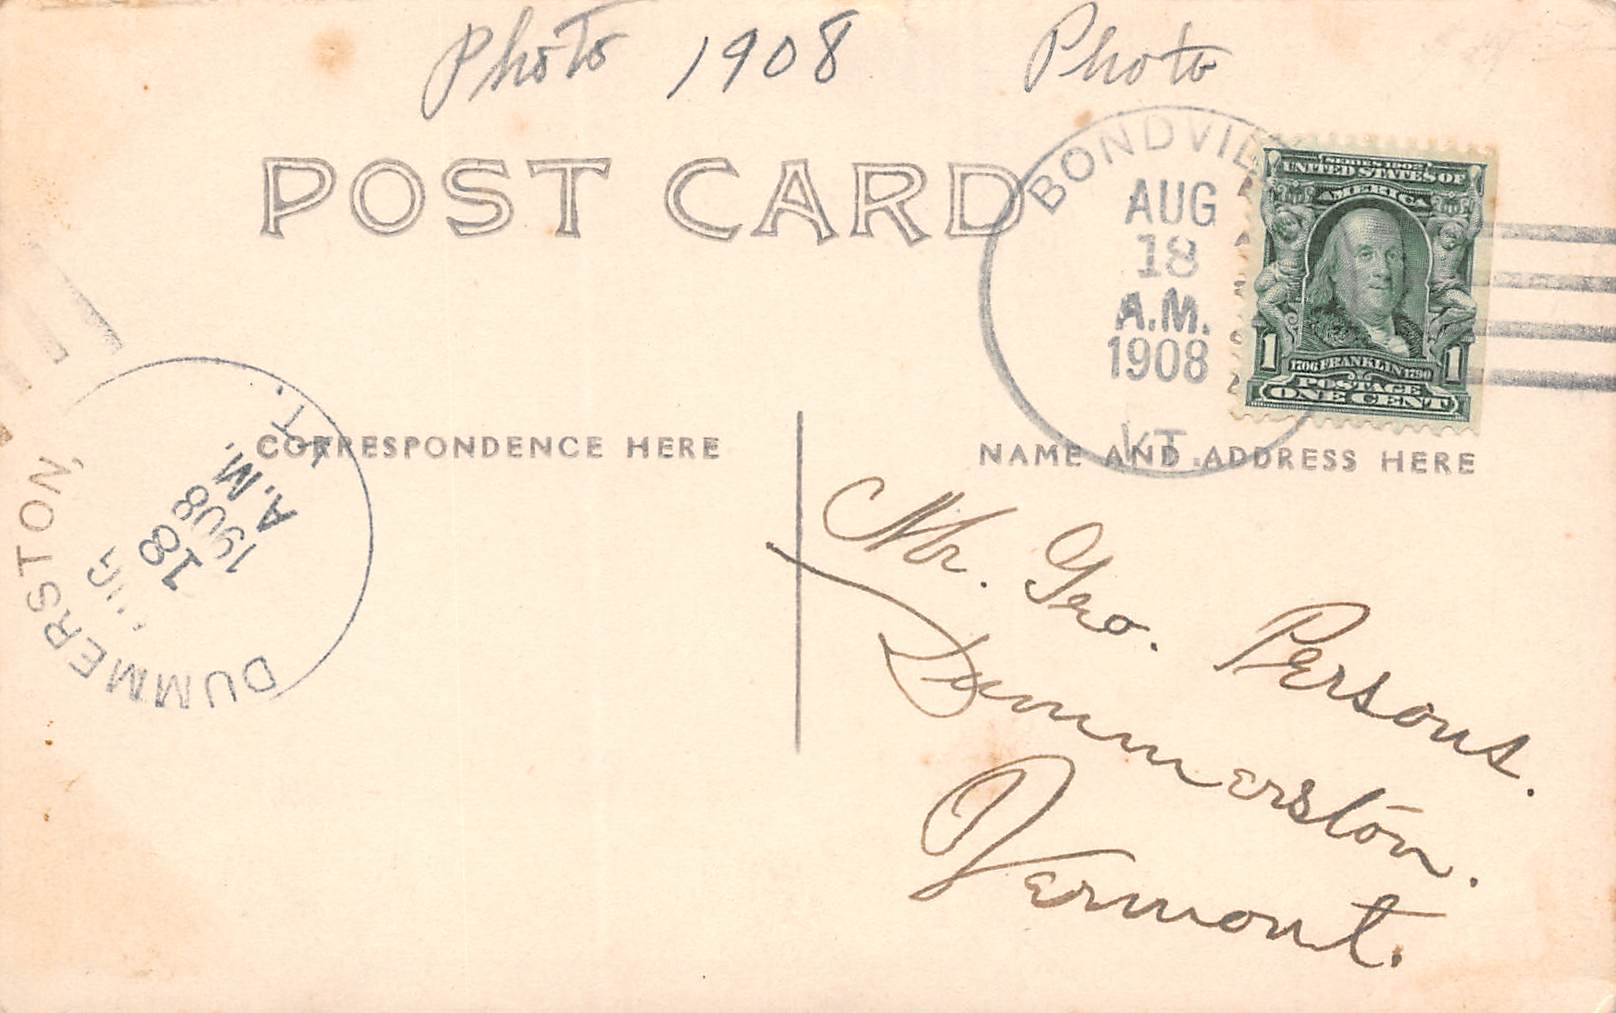 Photo 1908 Photo
POST CARD
BONDVIL
AUG
18
A.M.
1908
VT.
SERIES 1902
UNITED STATES OF
AMERICA
1 1706 FRANKLIN 1790 1
POSTAGE
ONE CENT
CORRESPONDENCE HERE
NAME AND ADDRESS HERE
DUMMERSTON, VT.
AUG
18
1908
A.M.
Mr. Geo. Persons.
Dummerston.
Vermont.